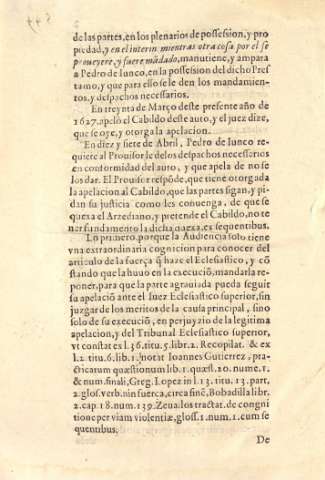 de las partes, en los plenarios de possession, y pro
piedad, y en el interin mientras otra cosa por el se
proueyere, y fuere mãdado, manutiene, y ampara
a Pedro de Iunco, en la possession del dicho Pres
tamo, y que para ello se le den los mandamien-
tos, y despachos necessarios.
En treynta de Março deste presente año de
1627. apelò el Cabildo deste auto, y el juez dize,
que se oye, y otorga la apelacion.
En diez y siete de Abril, Pedro de Iunco re-
quiere al Prouisor le de los despachos necessarios
en conformidad del auto, y que apela de no se
los dar. El Prouisor respõde, que tiene otorgada
la apelacion al Cabildo, que las partes sigan, y pi-
dan su justicia como les conuenga, de que se
quexa el Arzediano, y pretende el Cabildo, no te
ner fundamento la dicha quexa, ex sequentibus.
Lo primero, porque la Audiencia solo tiene
vna extraordinaria cognicion para conocer del
articulo de la fuerça q̃ haze el Eclesiastico, y cõ
stando que la huuo en la execuciõ, mandarla re-
poner, para que la parte agrauiada pueda seguir
su apelaciõ ante el Iuez Eclesiastico superior, sin
juzgar de los meritos de la causa principal, sino
solo de su execuciõ, en perjuyzio de la legitima
apelacion, y del Tribunal Eclesiastico superior,
vt constat ex l. 36. tit. 5. lib. 2. Recopilat. & ex
l. 2. titu. 6. lib. 1. notat Ioannes Gutierrez, pra-
cticarum quæstionum lib. 1. quæst. 20. nume. 1.
& num. finali, Greg. Lopez in l. 13. titu. 13. part.
2. glos. verb. nin fuerca, circa finẽ, Bobadilla libr.
2. cap. 18. num. 139. Zeua. los tractat. de congni
tione per viam violentiæ, gloss. 1. num. 1. cum se
quentibus.
De